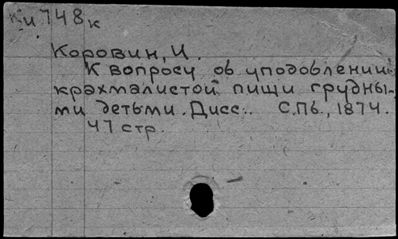 Ки 748к
Коровин, И.
К вопросу об уподовлении
крахмалистой пищи грудны-
ми детьми. Дисс.. С.Пб., 1874.
47 стр.